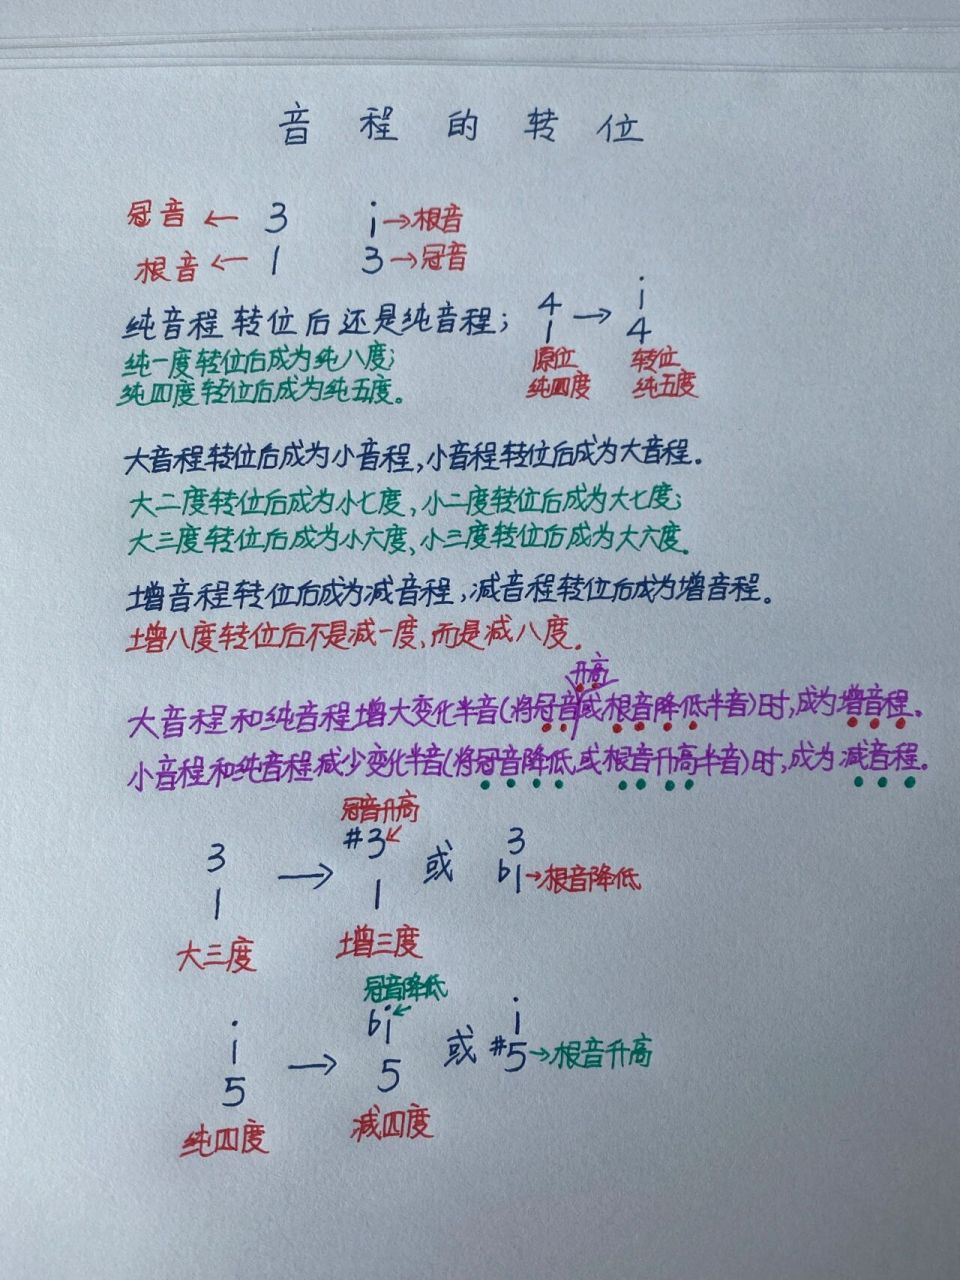 音程的转位
冠音 ← 3 i → 根音
根音 ← 1 3 → 冠音
纯音程转位后还是纯音程; 4 → i
1 4
纯一度转位后成为纯八度; 原位 转位
纯四度转位后成为纯五度。 纯四度 纯五度
大音程转位后成为小音程,小音程转位后成为大音程。
大二度转位后成为小七度、小二度转位后成为大七度;
大三度转位后成为小六度、小三度转位后成为大六度。
增音程转位后成为减音程,减音程转位后成为增音程。
增八度转位后不是减一度,而是减八度。
升高
大音程和纯音程增大变化半音(将冠音或根音降低半音)时,成为增音程。
小音程和纯音程减少变化半音(将冠音降低或根音升高半音)时,成为减音程。
冠音升高
3 → #3 或 3
1 1 b1 → 根音降低
大三度 增三度
冠音降低
i → bi 或 i
5 5 #5 → 根音升高
纯四度 减四度